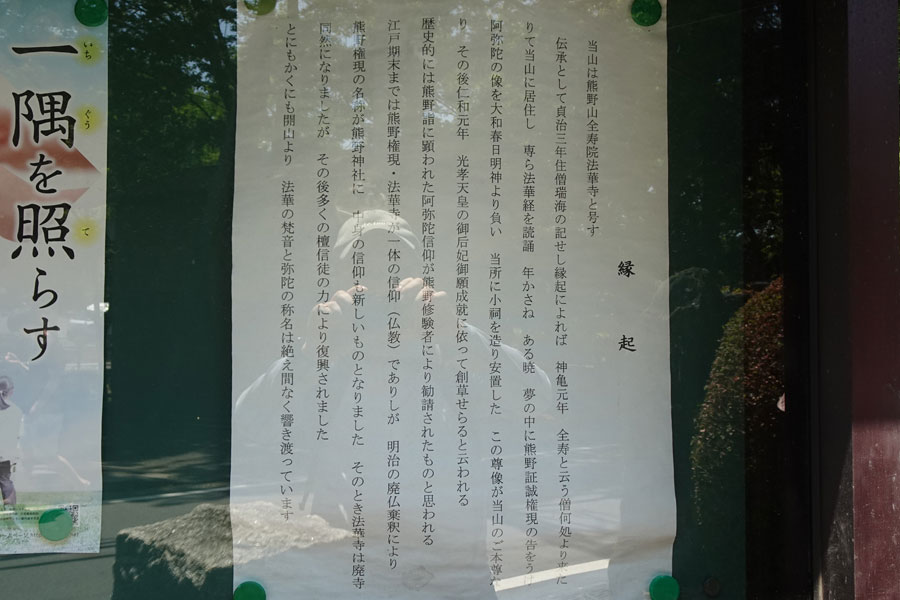 縁起
当山は熊野山全寿院法華寺と号す
伝承として貞治三年住僧瑞海の記せし縁起によれば 神亀元年 全寿と云う僧何処より来た
りて当山に居住し 専ら法華経を読誦 年かさね ある暁 夢の中に熊野証誠権現の告をうけ
阿弥陀の像を大和春日明神より負い 当所に小祠を造り安置した この尊像が当山のご本尊な
り その後仁和元年 光孝天皇の御后妃御願成就に依って創草せらると云われる
歴史的には熊野詣に顕われた阿弥陀信仰が熊野修験者により勧請されたものと思われる
江戸期末までは熊野権現・法華寺が一体の信仰(仏教)でありしが 明治の廃仏棄釈により
熊野権現の名称が熊野神社に の信仰も新しいものとなりました そのとき法華寺は廃寺
同然になりましたが その後多くの檀信徒の力により復興されました
とにもかくにも開山より 法華の梵音と弥陀の称名は絶え間なく響き渡っています
一隅を照らす
いち ぐう て